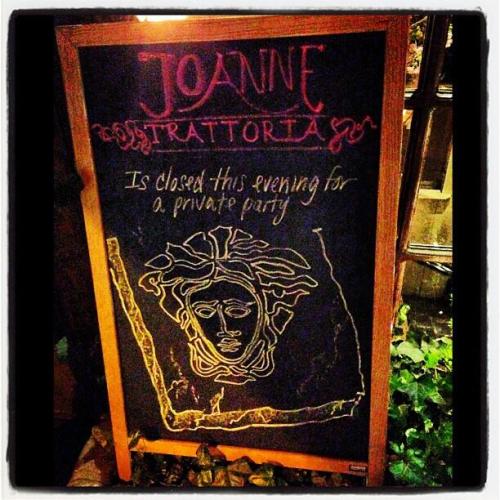 JOANNE
TRATTORIA
Is closed this evening for
a private party